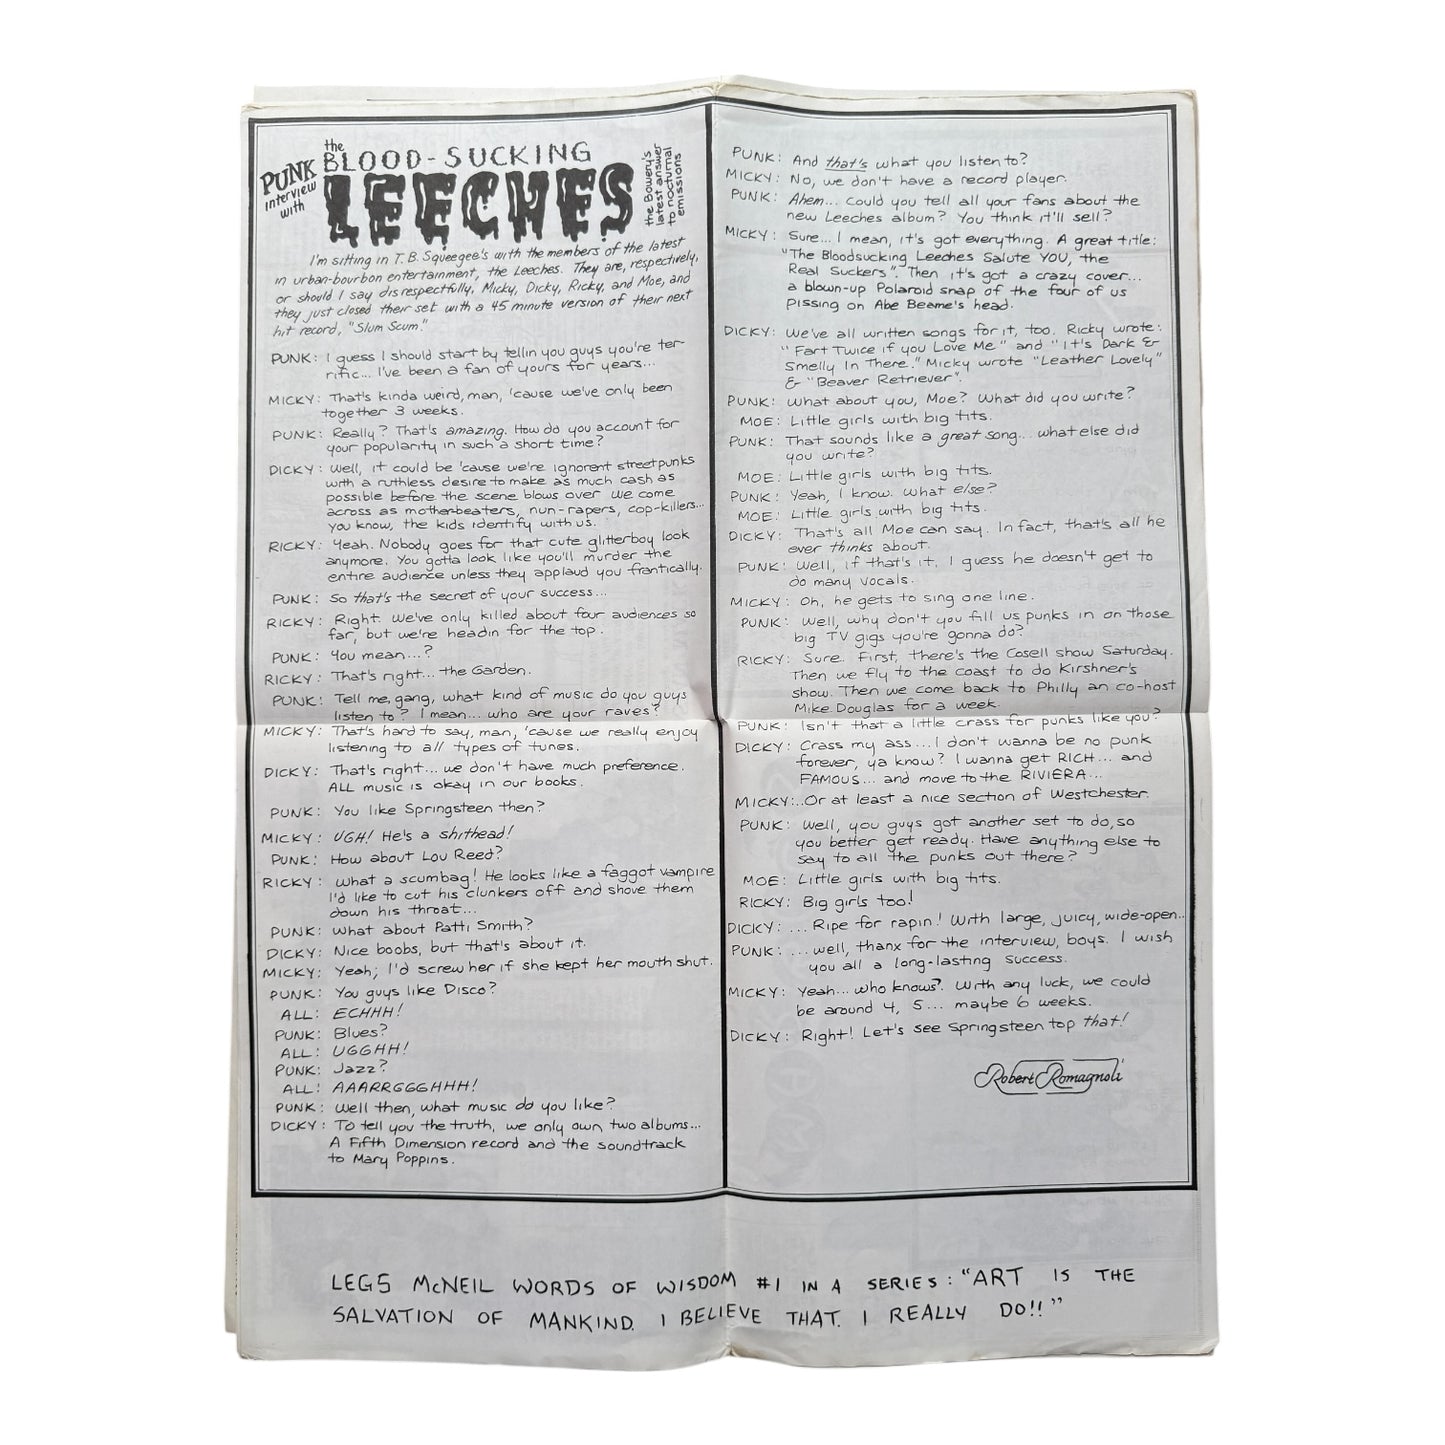 PUNK
interview
with
the
BLOOD-SUCKING
LEECHES
the Bowery's
latest answer
to nocturnal
emissions
I'm sitting in T.B. Squeegee's with the members of the latest
in urban-bourbon entertainment, the Leeches. They are, respectively,
or should I say disrespectfully, Micky, Dicky, Ricky, and Moe, and
they just closed their set with a 45 minute version of their next
hit record, "Slum Scum."
PUNK: I guess I should start by tellin you guys you're ter-
rific... I've been a fan of yours for years...
MICKY: That's kinda weird, man, 'cause we've only been
together 3 weeks.
PUNK: Really? That's amazing. How do you account for
your popularity in such a short time?
DICKY: Well, it could be 'cause we're ignorent streetpunks
with a ruthless desire to make as much cash as
possible before the scene blows over. We come
across as mother-beaters, nun-rapers, cop-killers...
you know, the kids identify with us.
RICKY: Yeah. Nobody goes for that cute glitterboy look
anymore. You gotta look like you'll murder the
entire audience unless they applaud you frantically.
PUNK: So that's the secret of your success...
RICKY: Right. We've only killed about four audiences so
far, but we're headin for the top.
PUNK: You mean...?
RICKY: That's right... the Garden.
PUNK: Tell me, gang, what kind of music do you guys
listen to? I mean... who are your raves?
MICKY: That's hard to say, man, 'cause we really enjoy
listening to all types of tunes.
DICKY: That's right... we don't have much preference.
ALL music is okay in our books.
PUNK: You like Springsteen then?
MICKY: UGH! He's a shithead!
PUNK: How about Lou Reed?
RICKY: What a scumbag! He looks like a faggot vampire
I'd like to cut his clunkers off and shove them
down his throat...
PUNK: What about Patti Smith?
DICKY: Nice boobs, but that's about it.
MICKY: Yeah; I'd screw her if she kept her mouth shut.
PUNK: You guys like Disco?
ALL: ECHHH!
PUNK: Blues?
ALL: UGGHH!
PUNK: Jazz?
ALL: AAARRGGGHHH!
PUNK: Well then, what music do you like?
DICKY: To tell you the truth, we only own two albums...
A Fifth Dimension record and the soundtrack
to Mary Poppins.
PUNK: And that's what you listen to?
MICKY: No, we don't have a record player.
PUNK: Ahem... could you tell all your fans about the
new Leeches album? You think it'll sell?
MICKY: Sure... I mean, it's got everything. A great title:
"The Bloodsucking Leeches Salute YOU, the
Real Suckers". Then it's got a crazy cover...
a blown-up Polaroid snap of the four of us
pissing on Abe Beame's head.
DICKY: We've all written songs for it, too. Ricky wrote:
"Fart Twice if you Love Me" and "It's Dark &
Smelly In There." Micky wrote "Leather Lovely"
& "Beaver Retriever".
PUNK: What about you, Moe? What did you write?
MOE: Little girls with big tits.
PUNK: That sounds like a great song... what else did
you write?
MOE: Little girls with big tits.
PUNK: Yeah, I know. What else?
MOE: Little girls with big tits.
DICKY: That's all Moe can say. In fact, that's all he
ever thinks about.
PUNK: Well, if that's it, I guess he doesn't get to
do many vocals.
MICKY: Oh, he gets to sing one line.
PUNK: Well, why don't you fill us punks in on those
big TV gigs you're gonna do?
RICKY: Sure. First, there's the Cosell show Saturday.
Then we fly to the coast to do Kirshner's
show. Then we come back to Philly an co-host
Mike Douglas for a week.
PUNK: Isn't that a little crass for punks like you?
DICKY: Crass my ass... I don't wanna be no punk
forever, ya know? I wanna get RICH... and
FAMOUS... and move to the RIVIERA...
MICKY:..Or at least a nice section of Westchester.
PUNK: Well, you guys got another set to do, so
you better get ready. Have anything else to
say to all the punks out there?
MOE: Little girls with big tits.
RICKY: Big girls too!
DICKY: ... Ripe for rapin! With large, juicy, wide-open..
PUNK: ...well, thanx for the interview, boys. I wish
you all a long-lasting success.
MICKY: Yeah... who knows? With any luck, we could
be around 4, 5... maybe 6 weeks.
DICKY: Right! Let's see Springsteen top that!
Robert Romagnoli
LEGS McNEIL WORDS OF WISDOM #1 IN A SERIES: "ART IS THE
SALVATION OF MANKIND. I BELIEVE THAT. I REALLY DO!!"